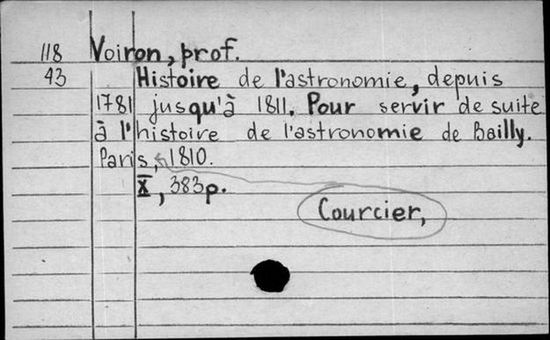 118 Voiron, prof.
43 Histoire de l'astronomie, depuis
1781 jusqu'à 1811. Pour servir de suite
à l'histoire de l'astronomie de Bailly.
Paris, 1810.
X, 383p.
Courcier,